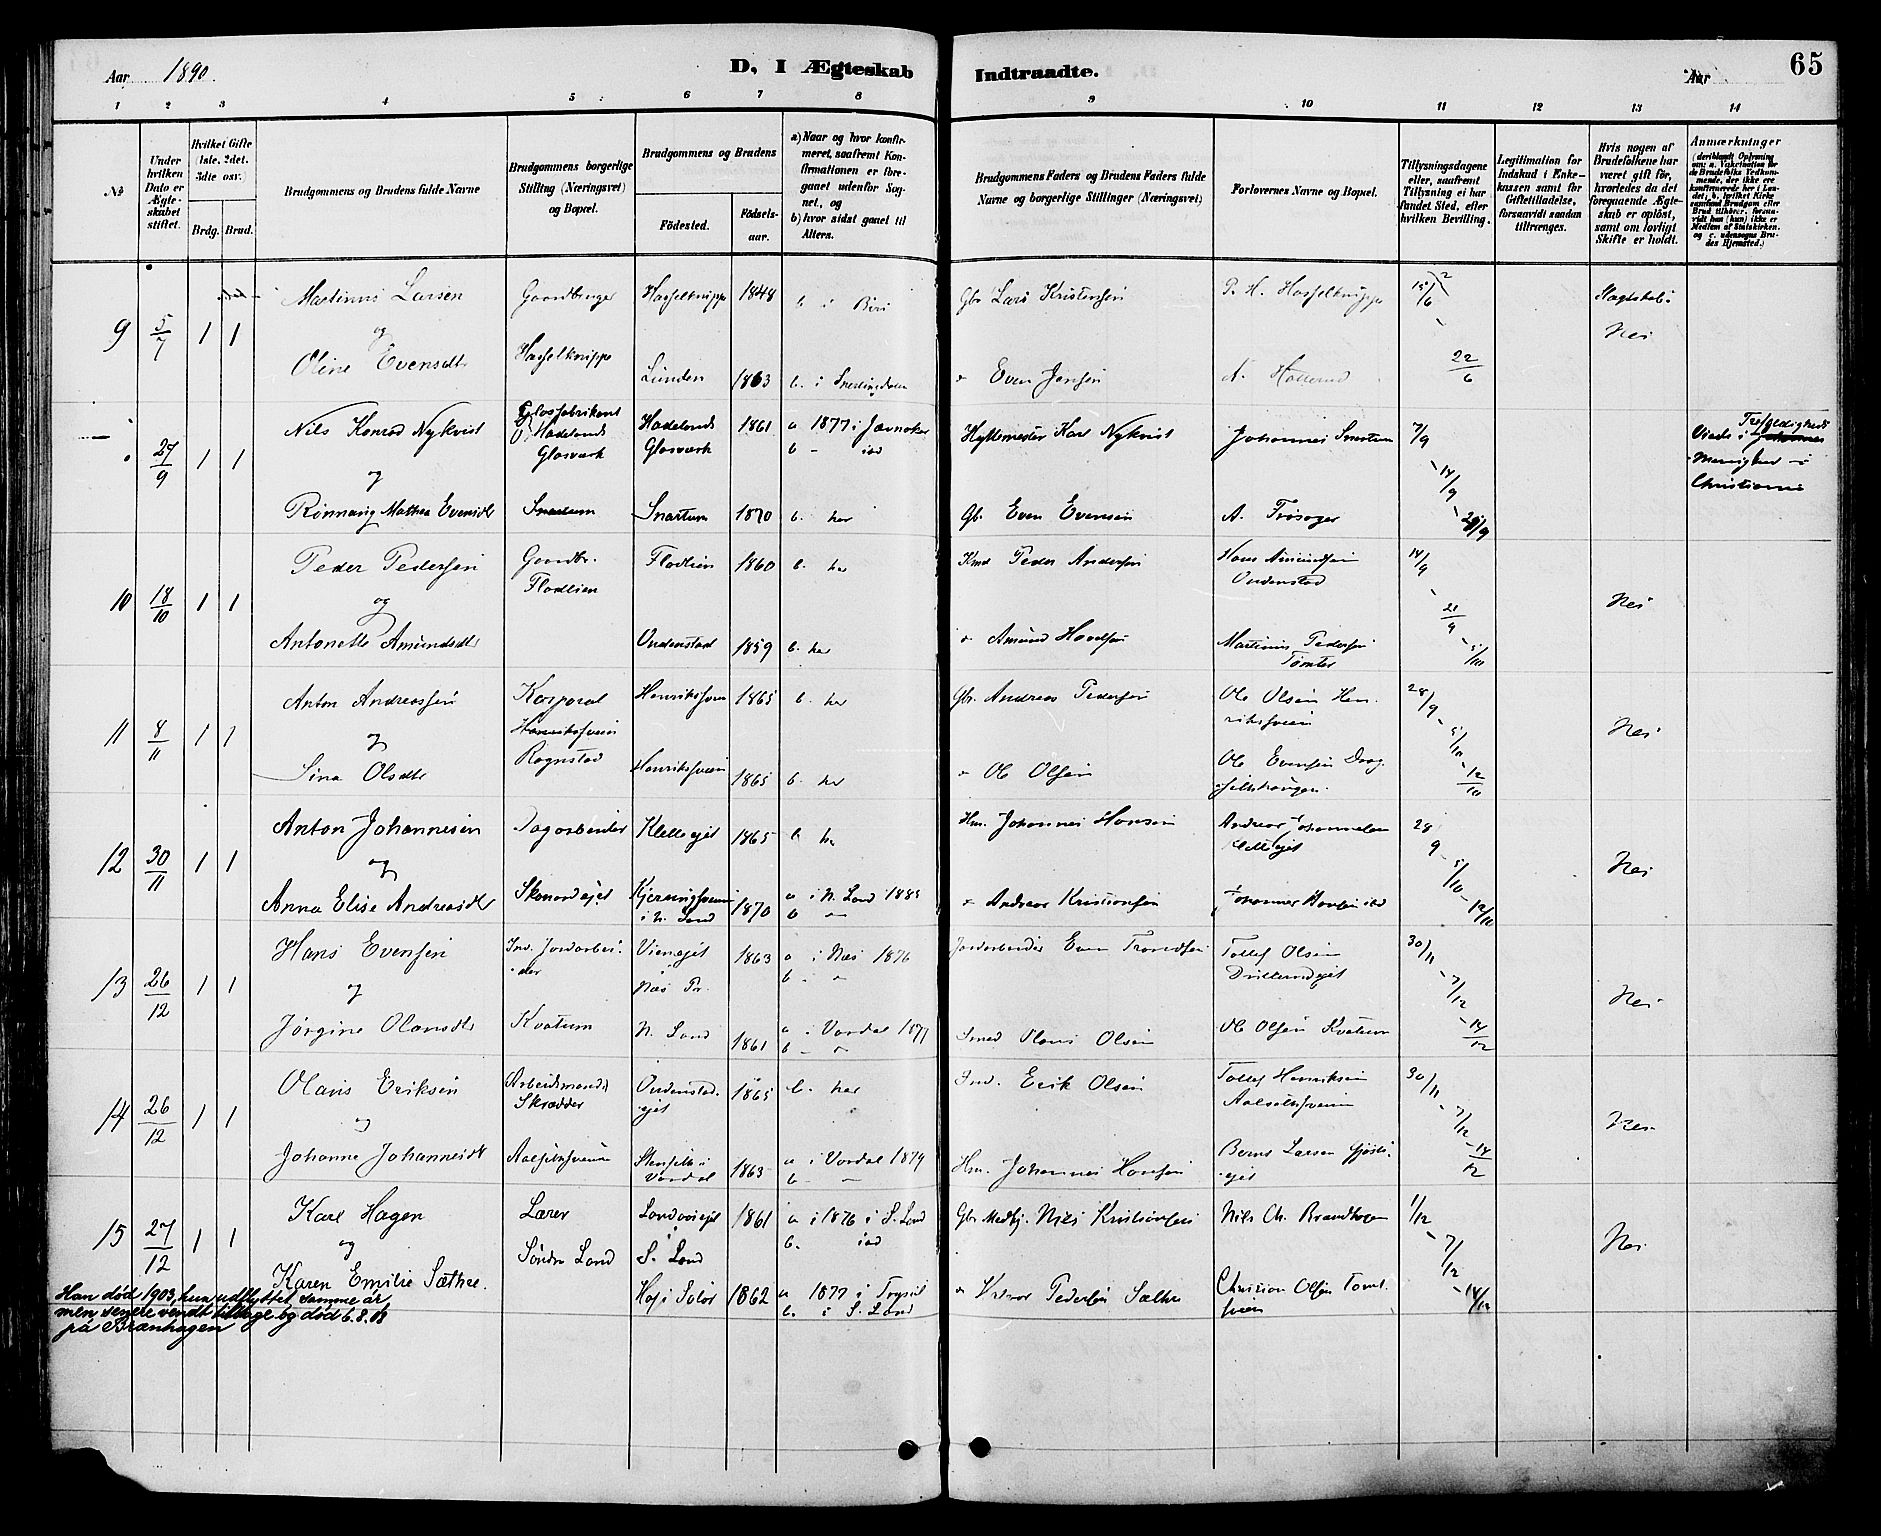 Aar 1890.
D, I Ægteskab Indtraadte.
Aar
65
1 2 3 4 5 6 7 8 9 10 11 12 13 14
No
Under hvilken Dato er Ægteskabet stiftet.
Hvilket Gifte (1ste, 2det, 3die osv.)
Brdg. Brud.
Brudgommens og Brudens fulde Navne
Brudgommens borgerlige Stilling (Næringsvei) og Bopæl.
Brudgommens og Brudens
Fødested. Fødselsaar.
a) Naar og hvor konfirmeret, saafremt Konfirmationen er foregaaet udenfor Sognet, og
b) hvor sidst gaaet til Alters.
Brudgommens Faders og Brudens Faders fulde Navne og borgerlige Stillinger (Næringsvei)
Forlovernes Navne og Bopæl.
Tillysningsdagene eller, saafremt Tillysning ei har fundet Sted, efter hvilken Bevilling.
Legitimation for Indskud i Enkekassen samt for Giftetilladelse, forsaavidt saadan tiltrænges.
Hvis nogen af Brudefolkene har været gift før, hvorledes da det foregaaende Ægteskab er opløst, samt om lovligt Skifte er holdt.
Anmærkninger
9 5/7 1 1 Martinus Larsen Gaardbruger Hasselknippe 1848 b. i Biri Gbr Lars Kristensen P. H. Hasselknippe 15/6 Slægtskab:
og Hasselknippe Nei
Oline Evensdtr Lunden 1863 b. i Snertingdalen " Even Jensen A. Hollerud 22/6
27/9 1 1 Nils Konrad Nykvist Glasfabrikant Hadelands Glasværk Hadelands Glasværk 1861 a 1877 i Jævnaker b - ibd Hyttemester Karl Nykvist Johannes Snartum 7/9 Viede i Trefoldigheds Menighed i Christiania
og - 14/9
Rønnaug Mathea Evensdtr Snartum Snartum 1870 b. her Gb. Even Evensen A. Frøsager - 21/9
10 18/10 1 1 Peder Pedersen Gaardbr. Fladlien Fladlien 1860 b. her Kmd Peder Andersen Hans Amundsen Ondenstad 14/9 Nei
og - 21/9
Antonette Amundsdtr Ondenstad 1859 b. her " Amund Hovdsen Martinus Pedersen Tømter - 5/10
11 8/11 1 1 Anton Andreassen Korporal Henriksveen 1865 b. her Gbr. Andreas Pedersen Ole Olsen Henriksveen 28/9 Nei
og Henriksveen Rognstad - 5/10
Sina Olsdtr Henriksveen 1865 b. her " Ole Olsen Ole Evensen - 12/10
12 30/11 1 1 Anton Johannesen Dagarbeider Kletteejet 1865 b her Hm. Johannes Hansen Andreas Johannesen Kletteejet 28/9 Nei
og 5/10
Anna Elise Andreasdtr Skonordejet Kjerringsveen i N. Land 1870 a i N. Land 1885 b " " Andreas Kristiansen Johannes Hansen ibd - 12/10
13 26/12 1 1 Hans Evensen Ind. Jordarbeider Vienejet i Næs Pr. 1863 a i Næs 1876 b. - " Jordarbeider Even Trondsen Tollef Olsen Drillerudejet 30/11 Nei
og - 7/12
Jørgine Olausdtr Kvatum N. Land 1861 a i Vardal 1877 b - " Smed Olaus Olsen Ole Olsen Kvatum - 14/12
14 26/12 1 1 Olaus Eriksen Arbeidsmand Skrædder Ondenstadejet 1865 b. her Ind. Erik Olsen Tollef Henriksen Aalselksveen 30/11 Nei
og - 7/12
Johanne Johannesdtr Aalselksveen i Vardal 1863 a i Vardal 1879 b. " Hm. Johannes Hansen Bernt Larsen - 14/12
15 27/12 1 1 Karl Hagen Lærer Landvoiejet 1861 a i 1876 i S. Land b. ibd Gbr Medhj. Nils Kristiansen Nils Ch. Brandhagen 1/12 Nei
og Søndre Land S. Land - 7/12
Karen Emilie Sæthre Hof i Solør 1862 a 1877 i Trysil b. i S. Land " Halvor Pedersen Sæthre Christian Olsen - 14/12
Han død 1903, hun udflyttet samme år
men senere vendt tilbage og død 6.8.08
på Brænhagen